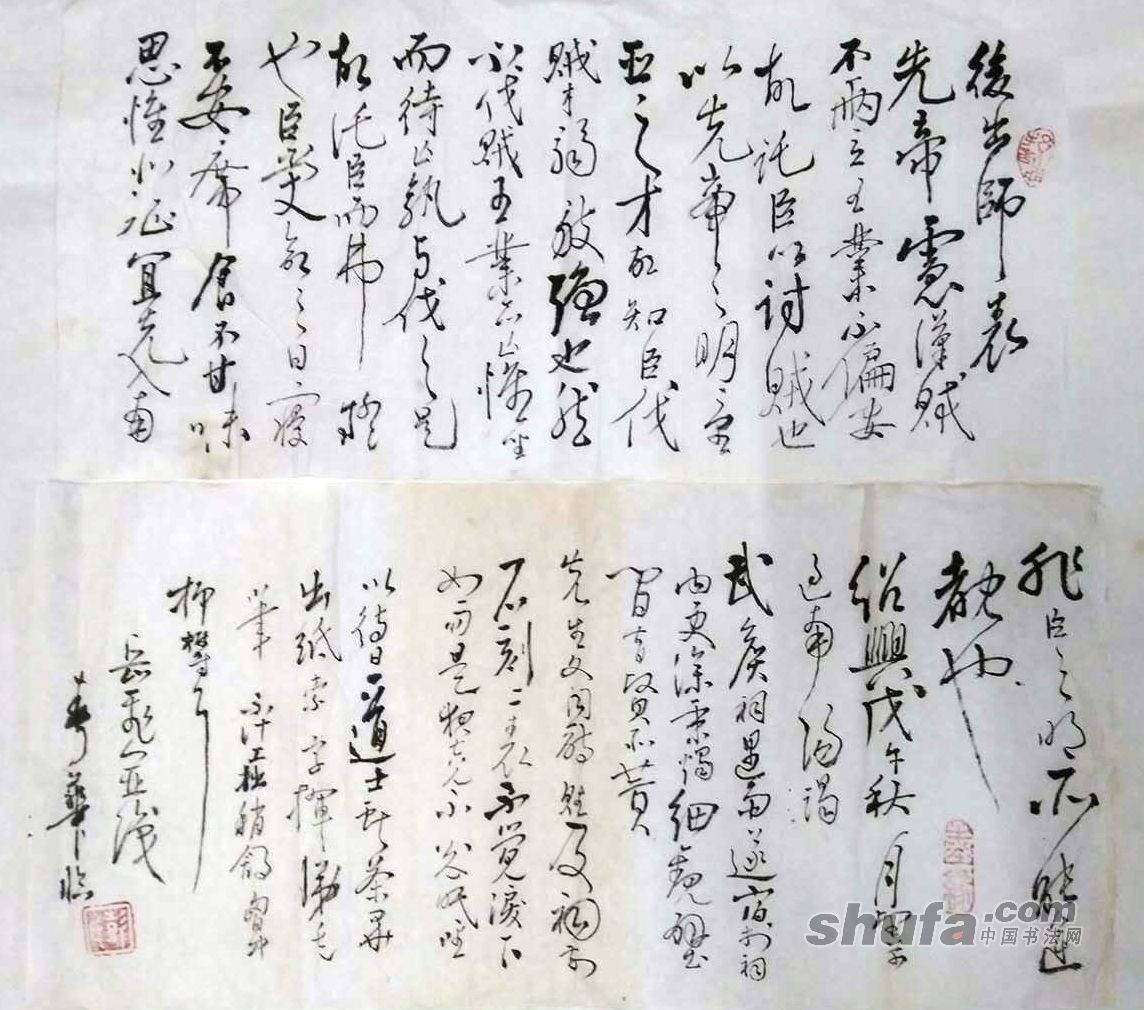 後出師表
先帝慮漢賊
不兩立王業不偏安
故託臣以討賊也
以先帝之明量
臣之才故知臣伐
賊才弱敵強也然
不伐賊王業亦亡惟坐
而待亡孰与伐之是
故託臣而弗疑
也臣受命之日寢
不安席食不甘味
思惟北征宜先入南
非臣之明所能逆
覩也
紹興戊午秋八月望前
過南陽謁
武侯祠遇雨遂宿於祠
内更深秉燭細觀壁
間昔賢所贊
先生文詞詩賦及祠前
石刻二表不覺淚下
如雨是夜竟不成眠坐
以待旦道士献茶畢
出紙索字揮涕走
筆不計工拙稍舒胸中
抑鬱耳
岳飛並識
華臨
shufa.com
中国书法网